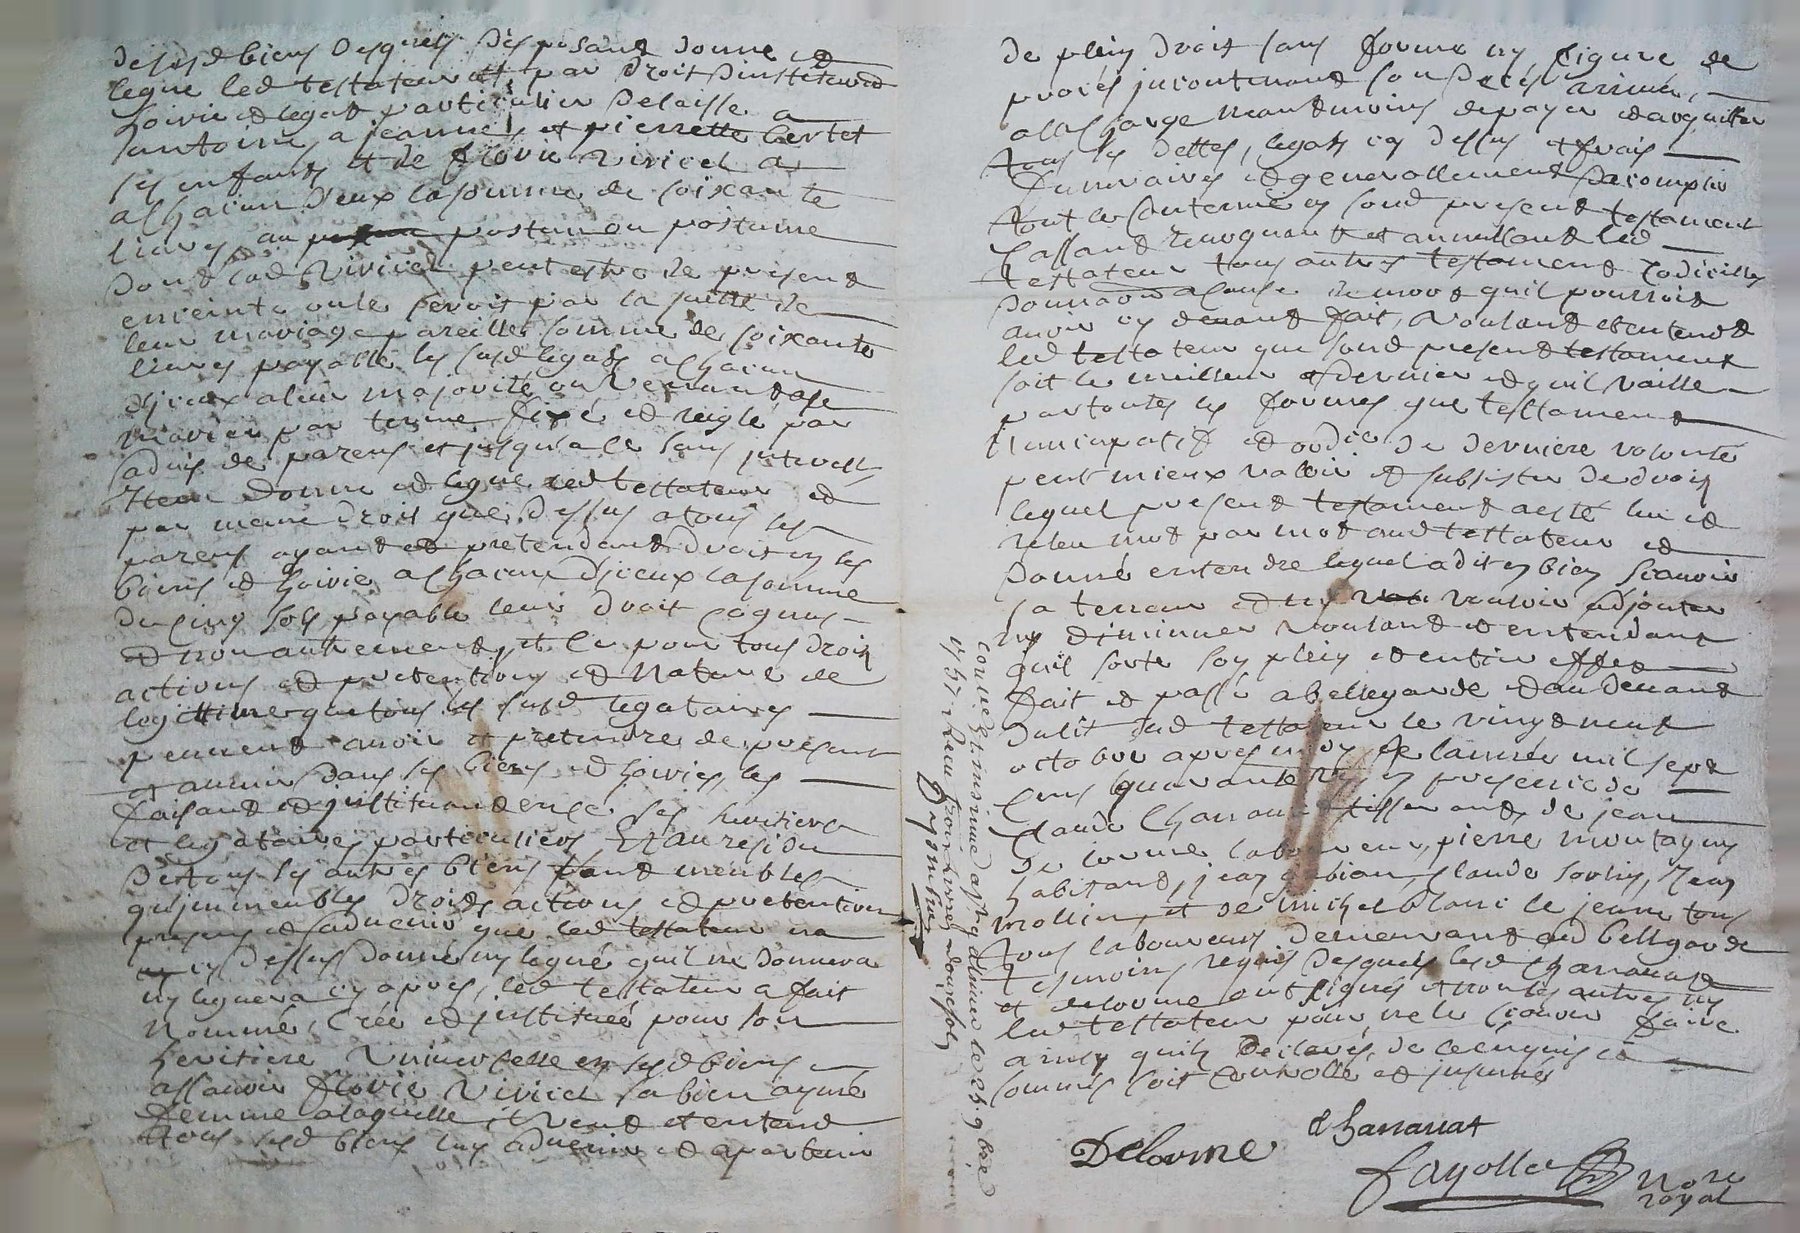 de ses d biens desquels disposant donne et
legue led testateur et par droit dinstitution
hoirie et legat particulier delaisse a
antoine, a jeanne, et pierrette bertet
ses enfants et de florie Viricel a
a chacun d'eux la somme de soixante
livres, au postume ou postume
dont lad Viricel peut estre de present
enceinte ou le seroit par la suitte de
leur mariage pareille somme de soixante
livres payable les susd legats a chacun
djceux a leur majorité ou venant a se
marier par terme fixé et reglé par
advis de parens et jusqu'a ce sans jnterest
Item donne et legue led testateur et
par meme droit que dessus a tous les
parens ayant et pretendant droit en ses
biens et hoirie a chacun djceux la somme
de cinq sols payable leur droit cognus
et non autrement, et ce pour tous droits
actions et pretentions et nature de
legittime que tous les susd legataires
peuvent avoir et pretendre de present
et avenir dans ses biens et hoiries les
faisant et jnstituant en ce ses heritiers
et legataires particuliers, Et au residu
de tous ses autres biens tant meubles
qu'jmmeubles droits actions et pretentions
presens et advenir que led testateur na
cy dessus donné ny legué quil ne donnera
ny leguera cy apres, led testateur a fait
nommé, créé et jnstitué pour son
heritiere Universelle en sesd biens
assavoir florie Viricel sa bien aymée
femme a laquelle il veut et entend
tous sesd biens luy advenir et apartenir
de plein droit sans forme ny figure de
proces jncontinant son deces arrivé,
a la charge neantmoins de payer et acquitter
tous ses dettes, legats cy dessus et frais
funeraires et generallement d'acomplir
tout le contenu en sond present testament
Cassant revoquant et annullant led
testateur tous autres testament codicilles
donnaōn a cause de mort quil pourroit
avoir cy devant fait, voulant et entend
led testateur que sond present testament
soit le meilleur et dernier et quil vaille
par toutes les formes que testament
nuncupatif et ordce de derniere volonté
peut mieux valloir et subsister de droit
lequel present testament a esté leu et
releu mot par mot aud testateur et
donné entendre lequel a dit en bien scavoir
la teneur et ny vouloir adjouter
ny diminuer voulant et entendant
quil sorte son plein et entier effet
fait et passé a bellegarde et au devant
du lit dud testateur le vingt neuf
octobre apres midy de lannée mil sept
cens quarante en presence de
claude Charranat tisserand, de jean
de lorme laboureur, pierre montagny
habitant, jean bian, claude, Jean
mollin, et de michel blanc le jeune tous
tous laboureurs demeurant aud bellegarde
tesmoins requis desquels led charranat
et delorme ont signés et non les autres ny
led testateur pour ne le scavoir faire
ainsy quils declarés de ce enquis et
sommés soit controllé et jnsinué
Delorme charranat
fayolle Nore
royal
Controllé et jnsinué a le 25. 9bre
1757 Receu livres douze sols